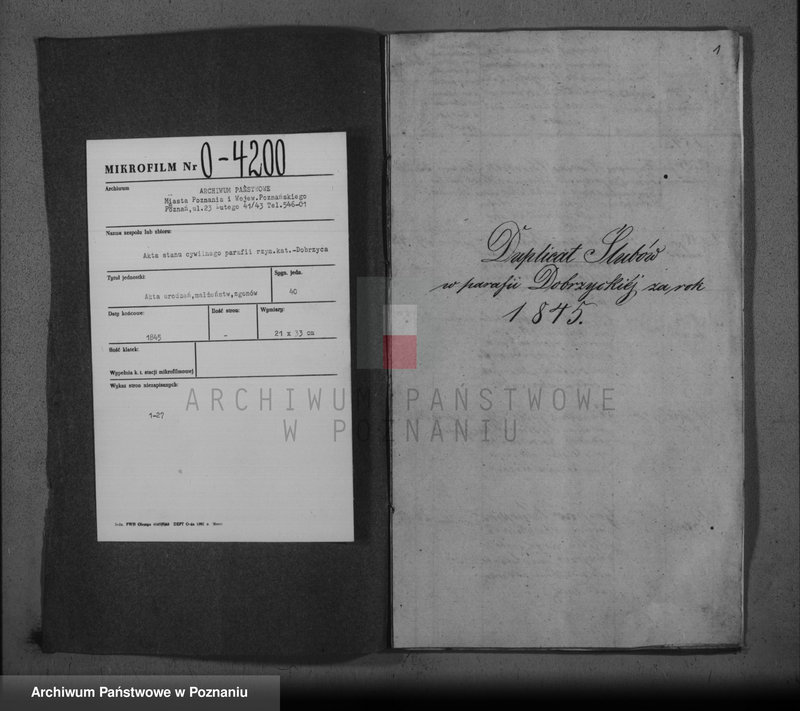 MIKROFILM Nr 0-4200
Archiwum
ARCHIWUM PAŃSTWOWE
Miasta Poznania i Wojew.Poznańskiego
Poznań,ul.23 Lutego 41/43 Tel.546-01
Nazwa zespołu lub zbioru:
Akta stanu cywilnego parafii rzym.kat.-Dobrzyca
Tytuł jednostki:
Sygn. jedn.
Akta urodzeń,małżeństw,zgonów
40
Daty końcowe:
Ilość stron:
Wymiary:
1845
-
21 x 33 cm
Ilość klatek:
Wypełnia k. t. stacji mikrofilmowej
Wykaz stron niezapisanych:
1-27
1
Duplicat Ślubów
w parafii Dobrzyckiéj za rok
1845.
ARCHIWUM PAŃSTWOWE
W POZNANIU
Archiwum Państwowe w Poznaniu